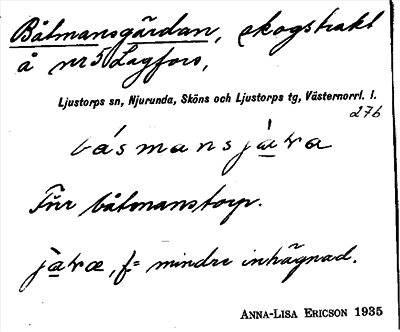 Båtmansgärdan, skogstrakt
å nr 5 Lagfors,
Ljustorps sn, Njurunda, Sköns och Ljustorps tg, Västernorrl. l.
276
básmansjàra
Förr båtmanstorp.
jàræ, f = mindre inhägnad.
ANNA-LISA ERICSON 1935